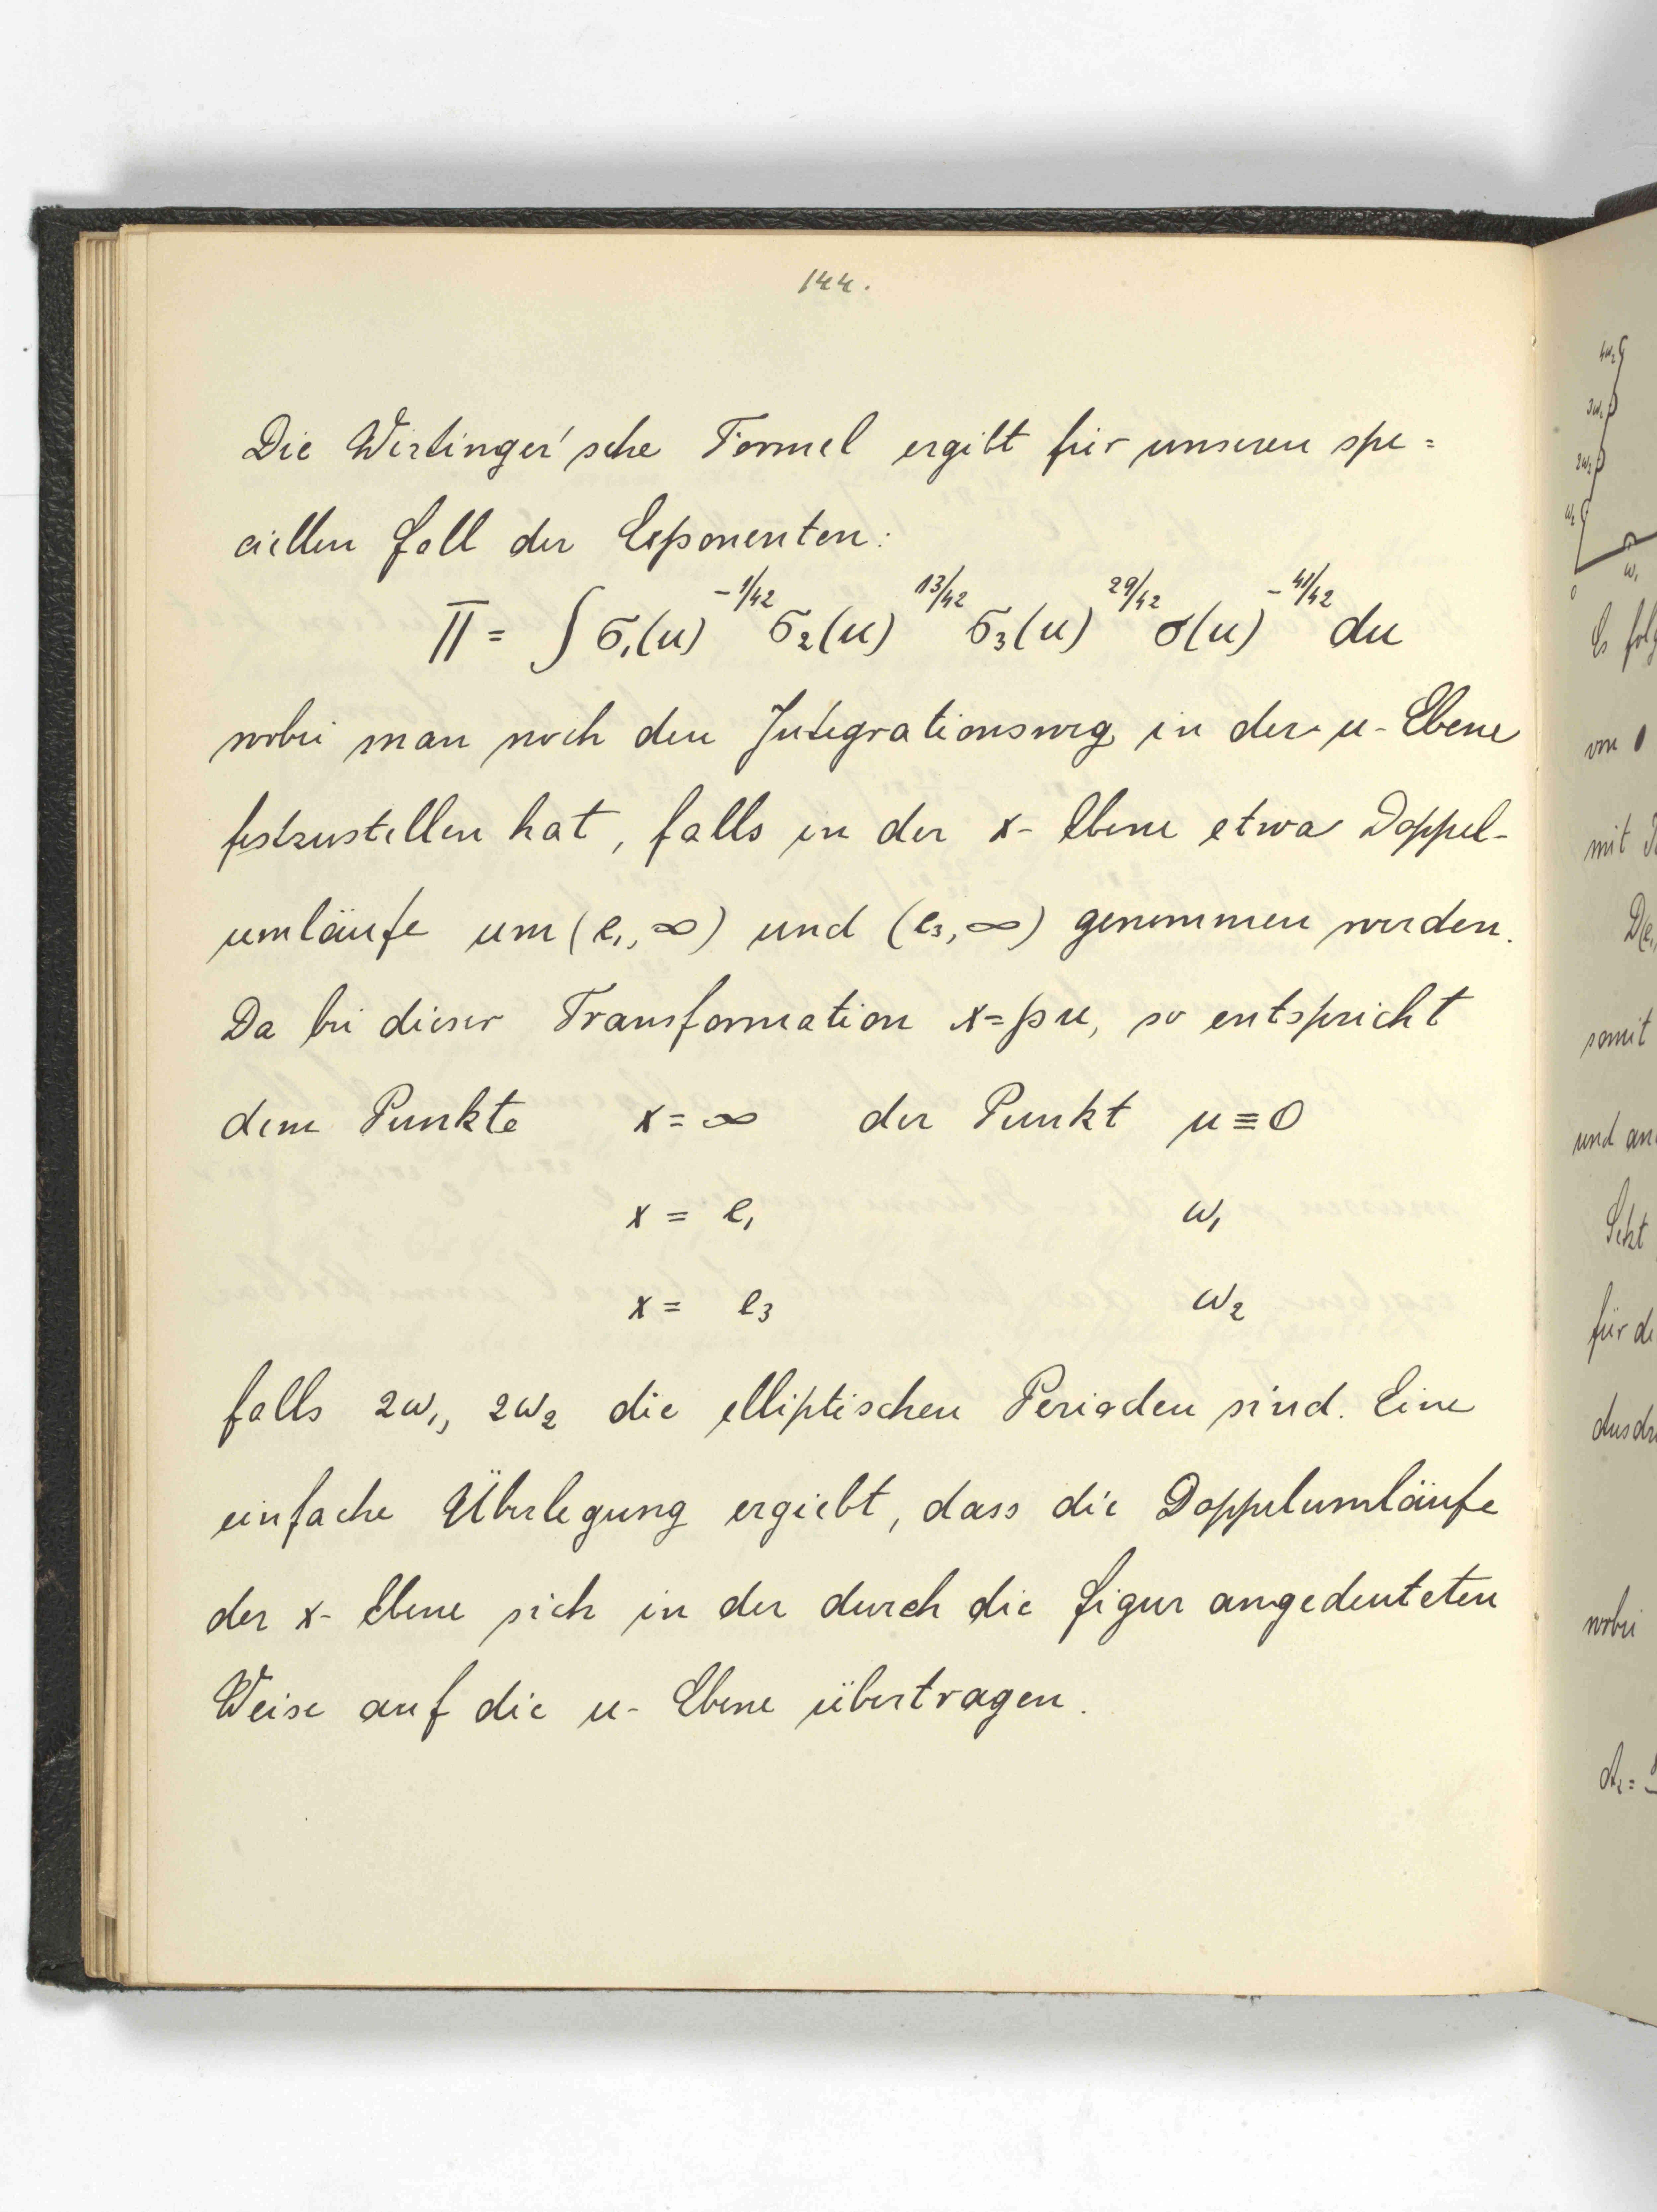 144.
Die Wirtinger'sche Formel ergibt für unseren spe=
ciellen Fall der Exponenten:
Π = ∫ σ₁(u)^{-1/42} σ₂(u)^{13/42} σ₃(u)^{29/42} σ(u)^{-41/42} du
wobei man noch den Integrationsweg in der u-Ebene
festzustellen hat, falls in der x-Ebene etwa Doppel-
umläufe um (e₁,∞) und (e₃,∞) genommen werden.
Da bei dieser Transformation x=℘u, so entspricht
dem Punkte x=∞ der Punkt u≡0
x = e₁ ω₁
x = e₃ ω₂
falls 2ω₁, 2ω₂ die elliptischen Perioden sind. Eine
einfache Überlegung ergiebt, dass die Doppelumläufe
der x-Ebene sich in der durch die Figur angedeuteten
Weise auf die u-Ebene übertragen.
4ω₂
3ω₂
2ω₂
ω₂
ω₁
0
Es
von 0
mit
somit
und
für
wobei